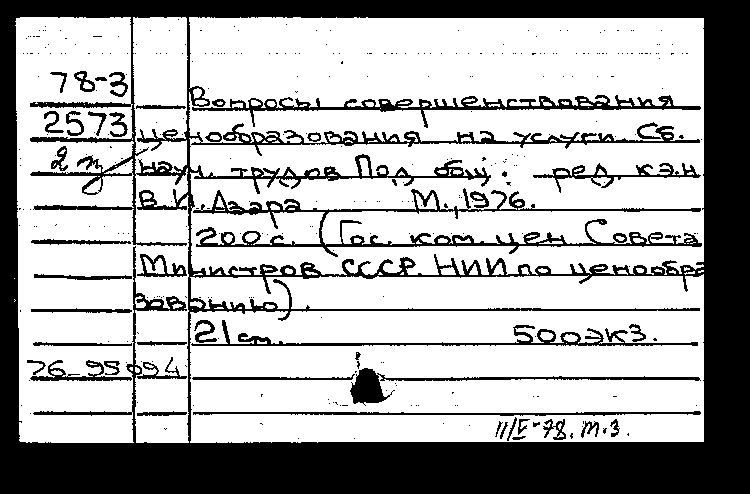 78-3
Вопросы совершенствования
2573 ценообразования на услуги. Сб.
науч. трудов Под общ. ред. к.э.н
В.И. Азара. М., 1976.
200 с. (Гос. ком. цен Совета
Министров СССР. НИИ по ценообра
зованию).
21 см. 500 экз.
76-95094
11/V-78. т.з.